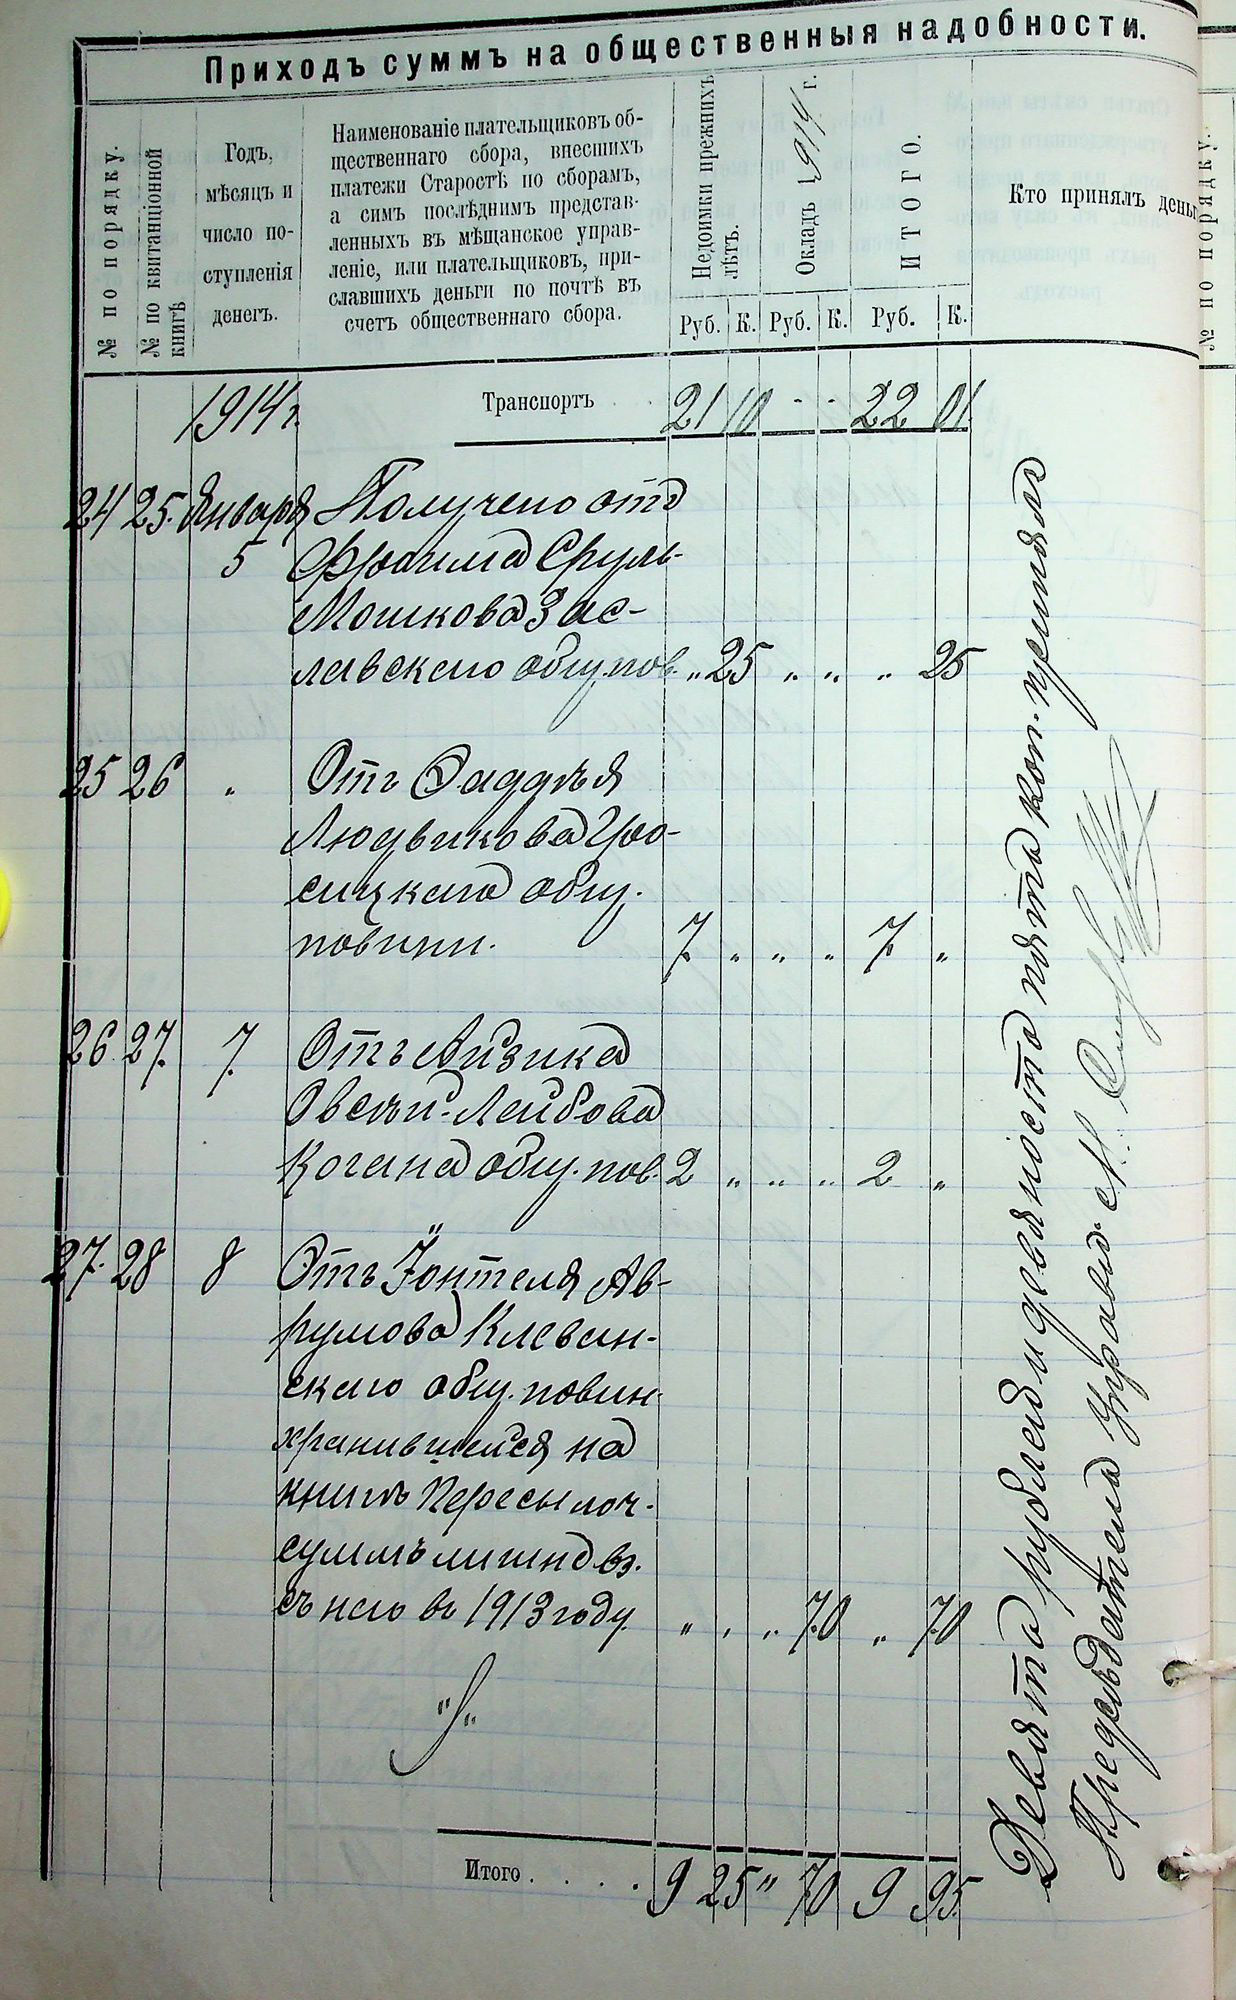 Приходъ суммъ на общественныя надобности.
№ по порядку.
№ по квитанціонной
книгѣ
Годъ,
мѣсяцъ и
число по-
ступленія
денегъ.
Наименованіе плательщиковъ об-
щественнаго сбора, внесшихъ
платежи Старостѣ по сборамъ,
а симъ послѣднимъ представ-
ленныхъ въ мѣщанское управ-
леніе, или плательщиковъ, при-
славшихъ деньги по почтѣ въ
счетъ общественнаго сбора.
Недоимки прежнихъ
лѣтъ.
Окладъ 1914 г.
ИТОГО.
Руб. К. Руб. К. Руб. К.
Кто принялъ деньг
№ по порядку.
1914 г. Транспортъ 21 10 - - 22 01.
24 25. Января Получено отъ
5 Фроима Сруль-
Мошкова Зас-
лавскаго общ. пов. „ 25 „ „ „ 25
25 26 „ Отъ Фаддѣя
Людвикова
сицкаго общ.
повинн. 7 „ „ „ 7 „
26 27. 7. Отъ Айзика
Овсѣй-Лейбова
Когана общ. пов. 2 „ „ „ 2 „
27. 28 8 Отъ Іонтеля Ав-
румова Клеван-
скаго общ. повин.
хранившейся на
книгѣ Пересылоч.
суммъ лишнѣ вз.
съ него въ 1913 году. „ „ „ 70 „ 70
Итого . . . . 9 25 „ 70 9 95.
Девять рублей и девяносто пять коп. принялъ
Предсѣдатель Управы